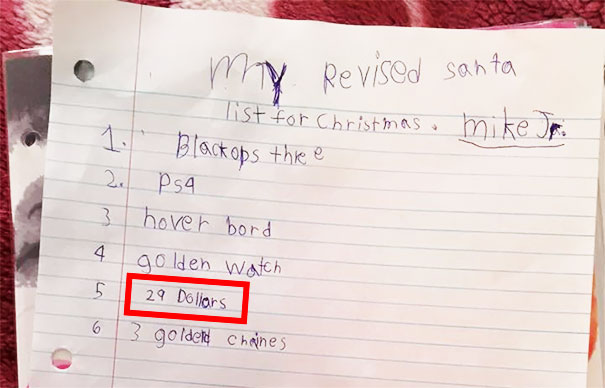 My Revised santa
list for Christmas. Mike Jr.
1. Blackops three
2. PS4
3 hover bord
4 golden watch
5 29 Dollars
6 3 golded chaines